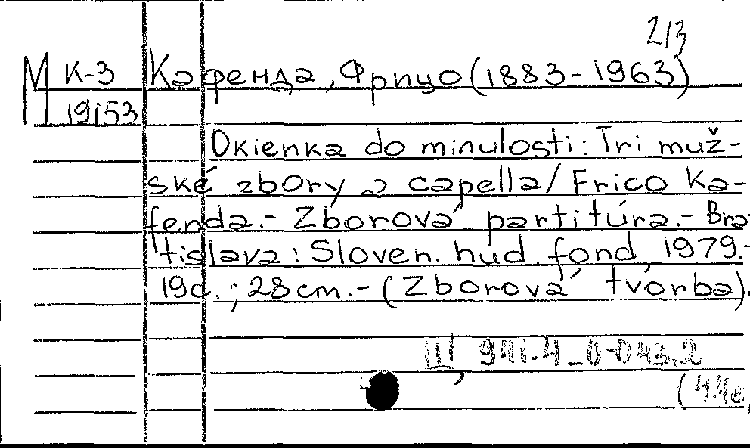 2/3
М К-3 Кафенда, Фрицо (1883-1963)
19153
Okienka do minulosti: Tri muž-
ské zbory a capella/ Frico Ka-
fenda.- Zborová partitúra.- Bra
tislava: Sloven. hud. fond, 1979.-
19c.; 28cm.- (Zborová tvorba).